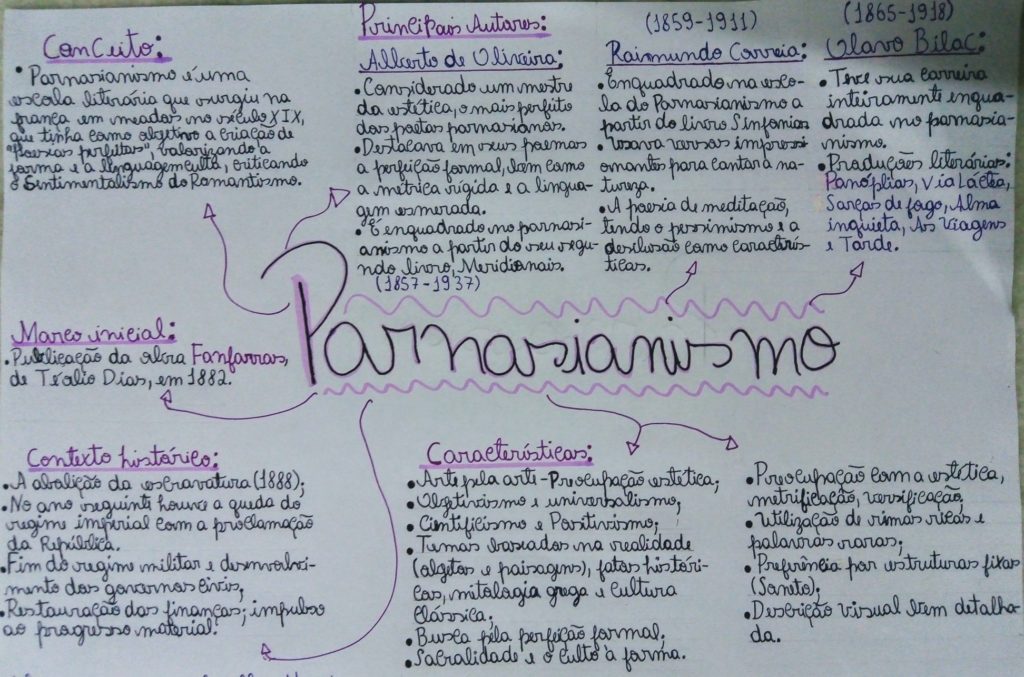 Conceito:
• Parnasianismo é uma
escola literária que surgiu na
frança em meados no século XIX,
que tinha como objetivo a criação de
"Poesias perfeitas", valorizando a
forma e a linguagem culta, criticando
o Sentimentalismo do Romantismo.
Principais Autores:
Alberto de Oliveira:
• Considerado um mestre
da estética, o mais perfeito
dos poetas parnasianos.
• Destacava em seus poemas
a perfeição formal, bem como
a métrica rígida e a lingua-
gem esmerada.
• É enquadrado no parnasi-
anismo a partir do seu segu-
ndo livro, Meridionais.
(1857-1937)
(1859-1911)
Raimundo Correia:
• Enquadrado na esco-
la do Parnasianismo a
partir do livro Sinfonias
• Usava versos impressi
onantes para cantar a na-
tureza.
• A poesia de meditação,
tendo o pessimismo e a
desilusão como caracterís-
ticas.
(1865-1918)
Olavo Bilac:
• Teve sua carreira
inteiramente enqua-
drada no parnasia-
nismo.
• Produções literárias:
Panóplias, Via Láctea,
Sarças de fogo, Alma
inquieta, As Viagens
e Tarde.
Parnasianismo
Marco inicial:
• Publicação da obra Fanfarras,
de Teófilo Dias, em 1882.
Contexto histórico:
• A abolição da escravatura (1888);
• No ano seguinte houve a queda do
regime imperial com a proclamação
da República.
• Fim do regime militar e desenvolvi-
mento dos governos civis;
• Restauração das finanças; impulso
ao progresso material.
Características:
• Arte pela arte - Preocupação estética;
• Objetivismo e universalismo;
• Cientificismo e Positivismo;
• Temas baseados na realidade
(objetos e paisagens), fatos históri-
cos, mitologia grega e Cultura
Clássica;
• Busca pela perfeição formal;
• Sacralidade e o culto à forma.
• Preocupação com a estética,
metrificação, versificação;
• Utilização de rimas ricas e
palavras raras;
• Preferência por estruturas fixas
(Soneto);
• Descrição visual bem detalha-
da.